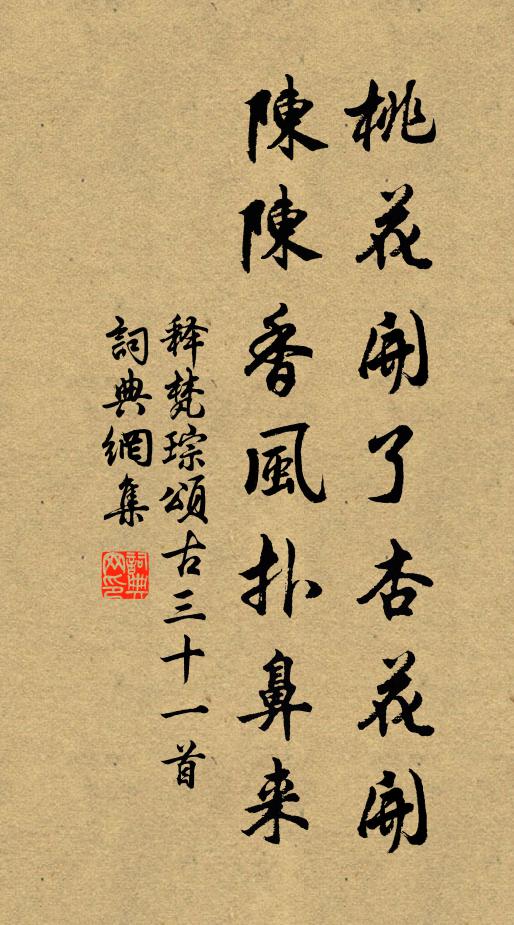 桃花開了杏花開
陳陳香風扑鼻来
释梵琮頌古三十一首
詞典網集
詞典
网印